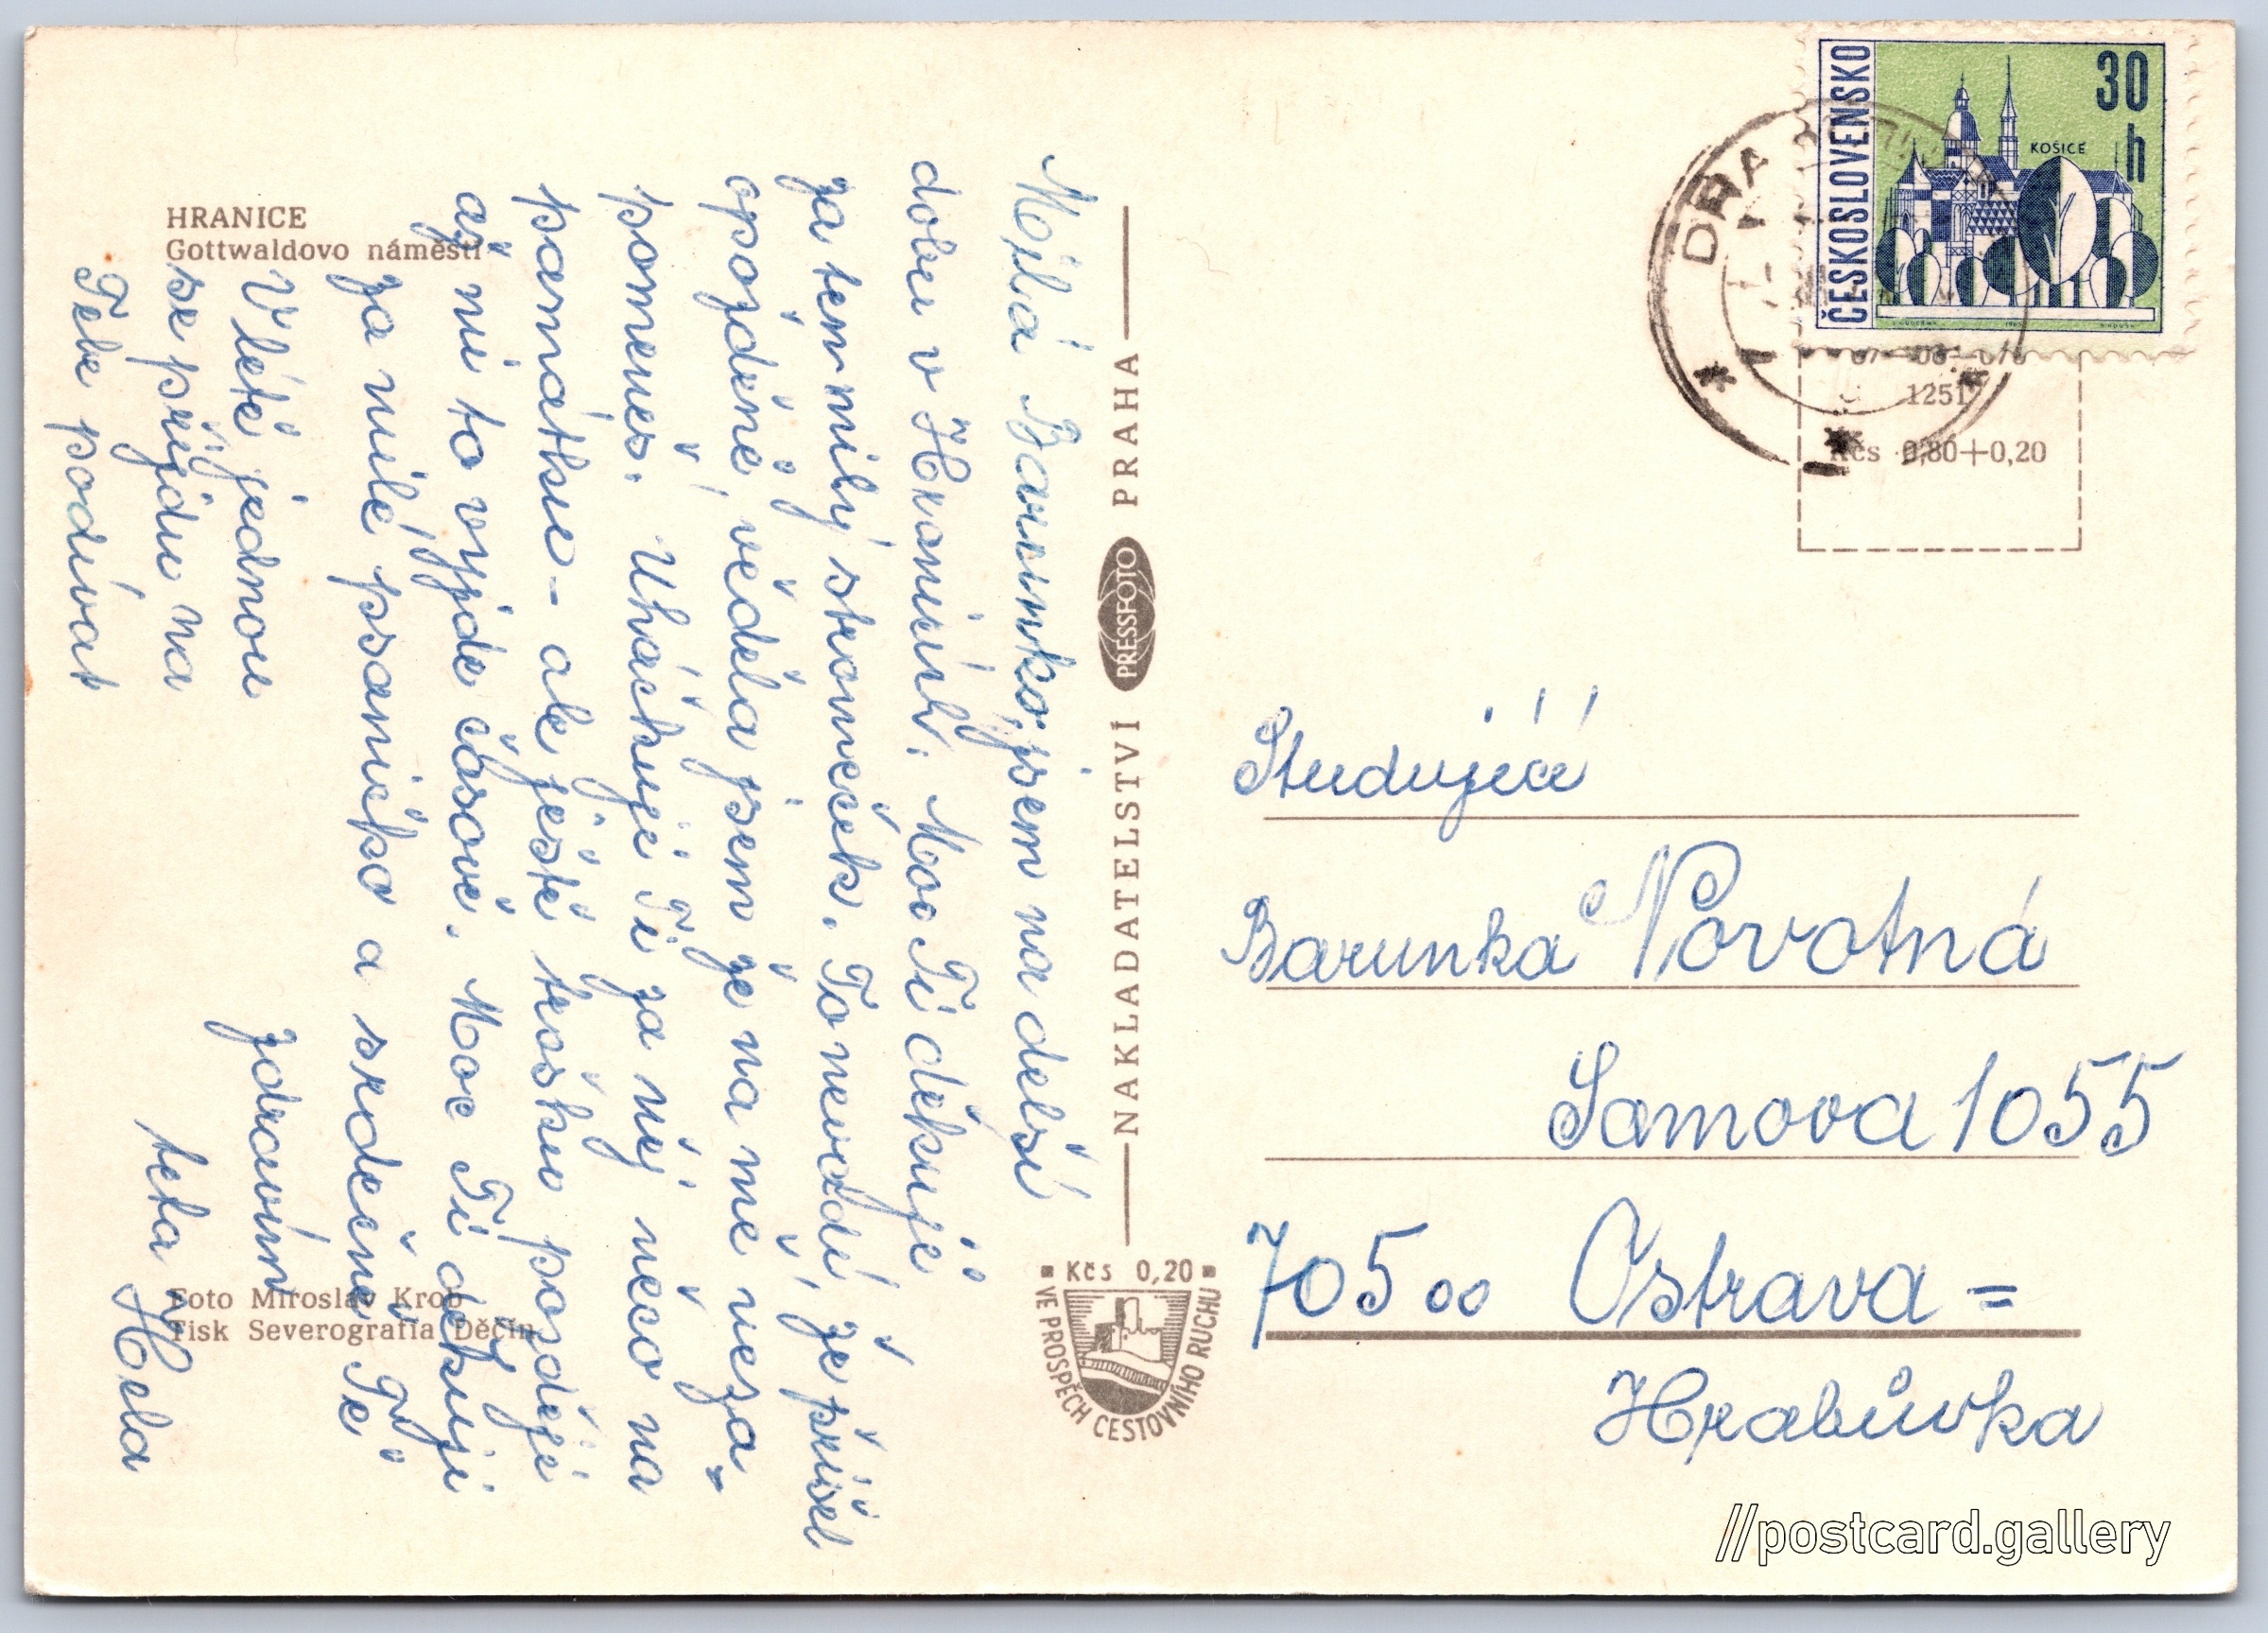 HRANICE
Gottwaldovo náměstí
Milá Barunko, jsem na delší
dobu v Hranicích. Moc Ti děkuji
za ten milý stromeček. To nevadí, že přišel
opožděně, věděla jsem že na mě neza-
pomeneš. Uháčkuji Ti za něj něco na
památku - ale ještě trošku později
až mi to vyjde časově. Moc Ti děkuji
za milé psaníčko a srdečně Tě
zdravím
V létě jednou
se přijdu na
Tebe podívat
teta Hela
Foto Miroslav Krob
Tisk Severografia Děčín
NAKLADATELSTVÍ PRESSFOTO PRAHA
Kčs 0,20
VE PROSPĚCH CESTOVNÍHO RUCHU
ČESKOSLOVENSKO
30 h
KOŠICE
1251
Kčs 0,80+0,20
Studující
Barunka Novotná
Samova 1055
705 00 Ostrava =
Hrabůvka
//postcard.gallery